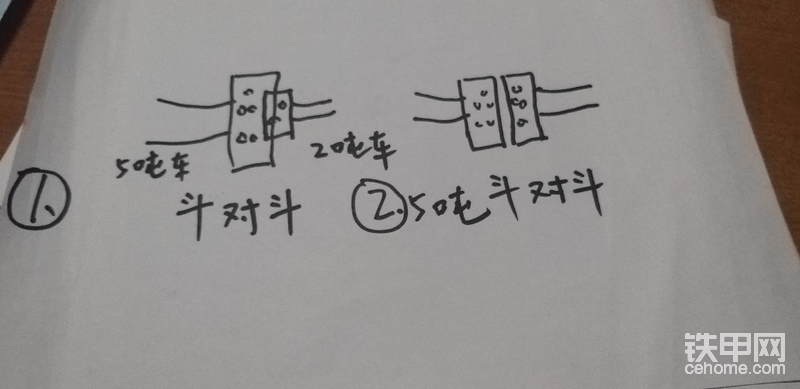 50吨车
20吨车
1.
斗对斗
2.
50吨斗对斗
铁甲网
cehome.com